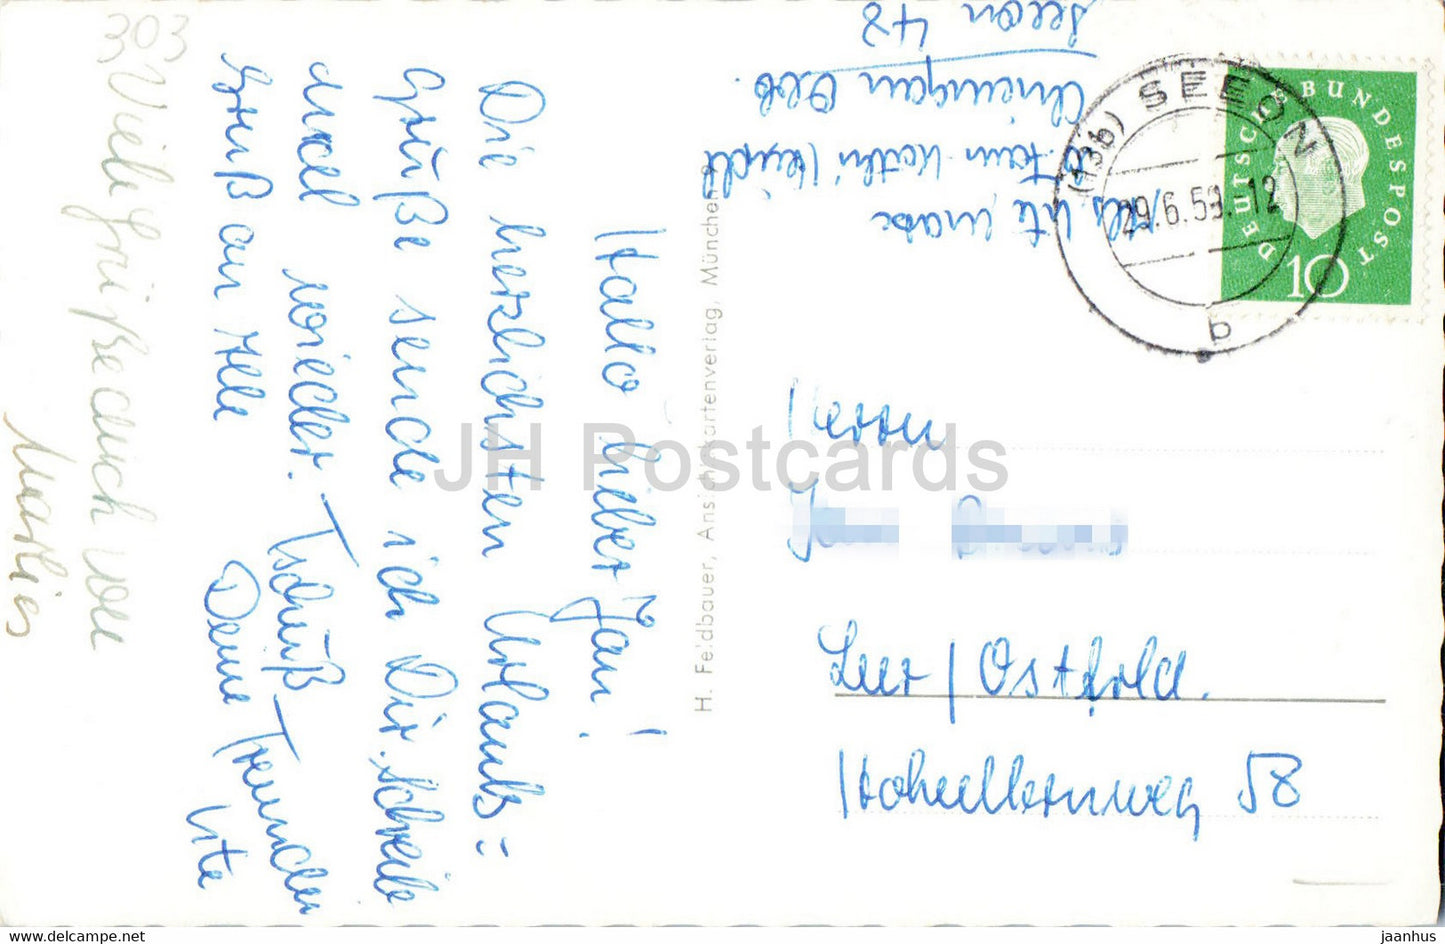 Hallo lieber Jan!
Die herzlichsten Urlaubs=
Grüße sende ich Dir. schreibe
mal wieder. Tschüß
Gruß an Alle Deine Freunde
Ute
Viele Grüße auch von
Marlies
303
H. Feldbauer, Ansichtskartenverlag, München
Ute
Chiemgau Obb.
Seeon 48
(13b) SEEON
29.6.59.-12
b
DEUTSCHE BUNDESPOST
10
Herrn
Leer / Ostfrld.
Hohellernweg 58
JH Postcards
www.jhpostcards.com
jaanhus